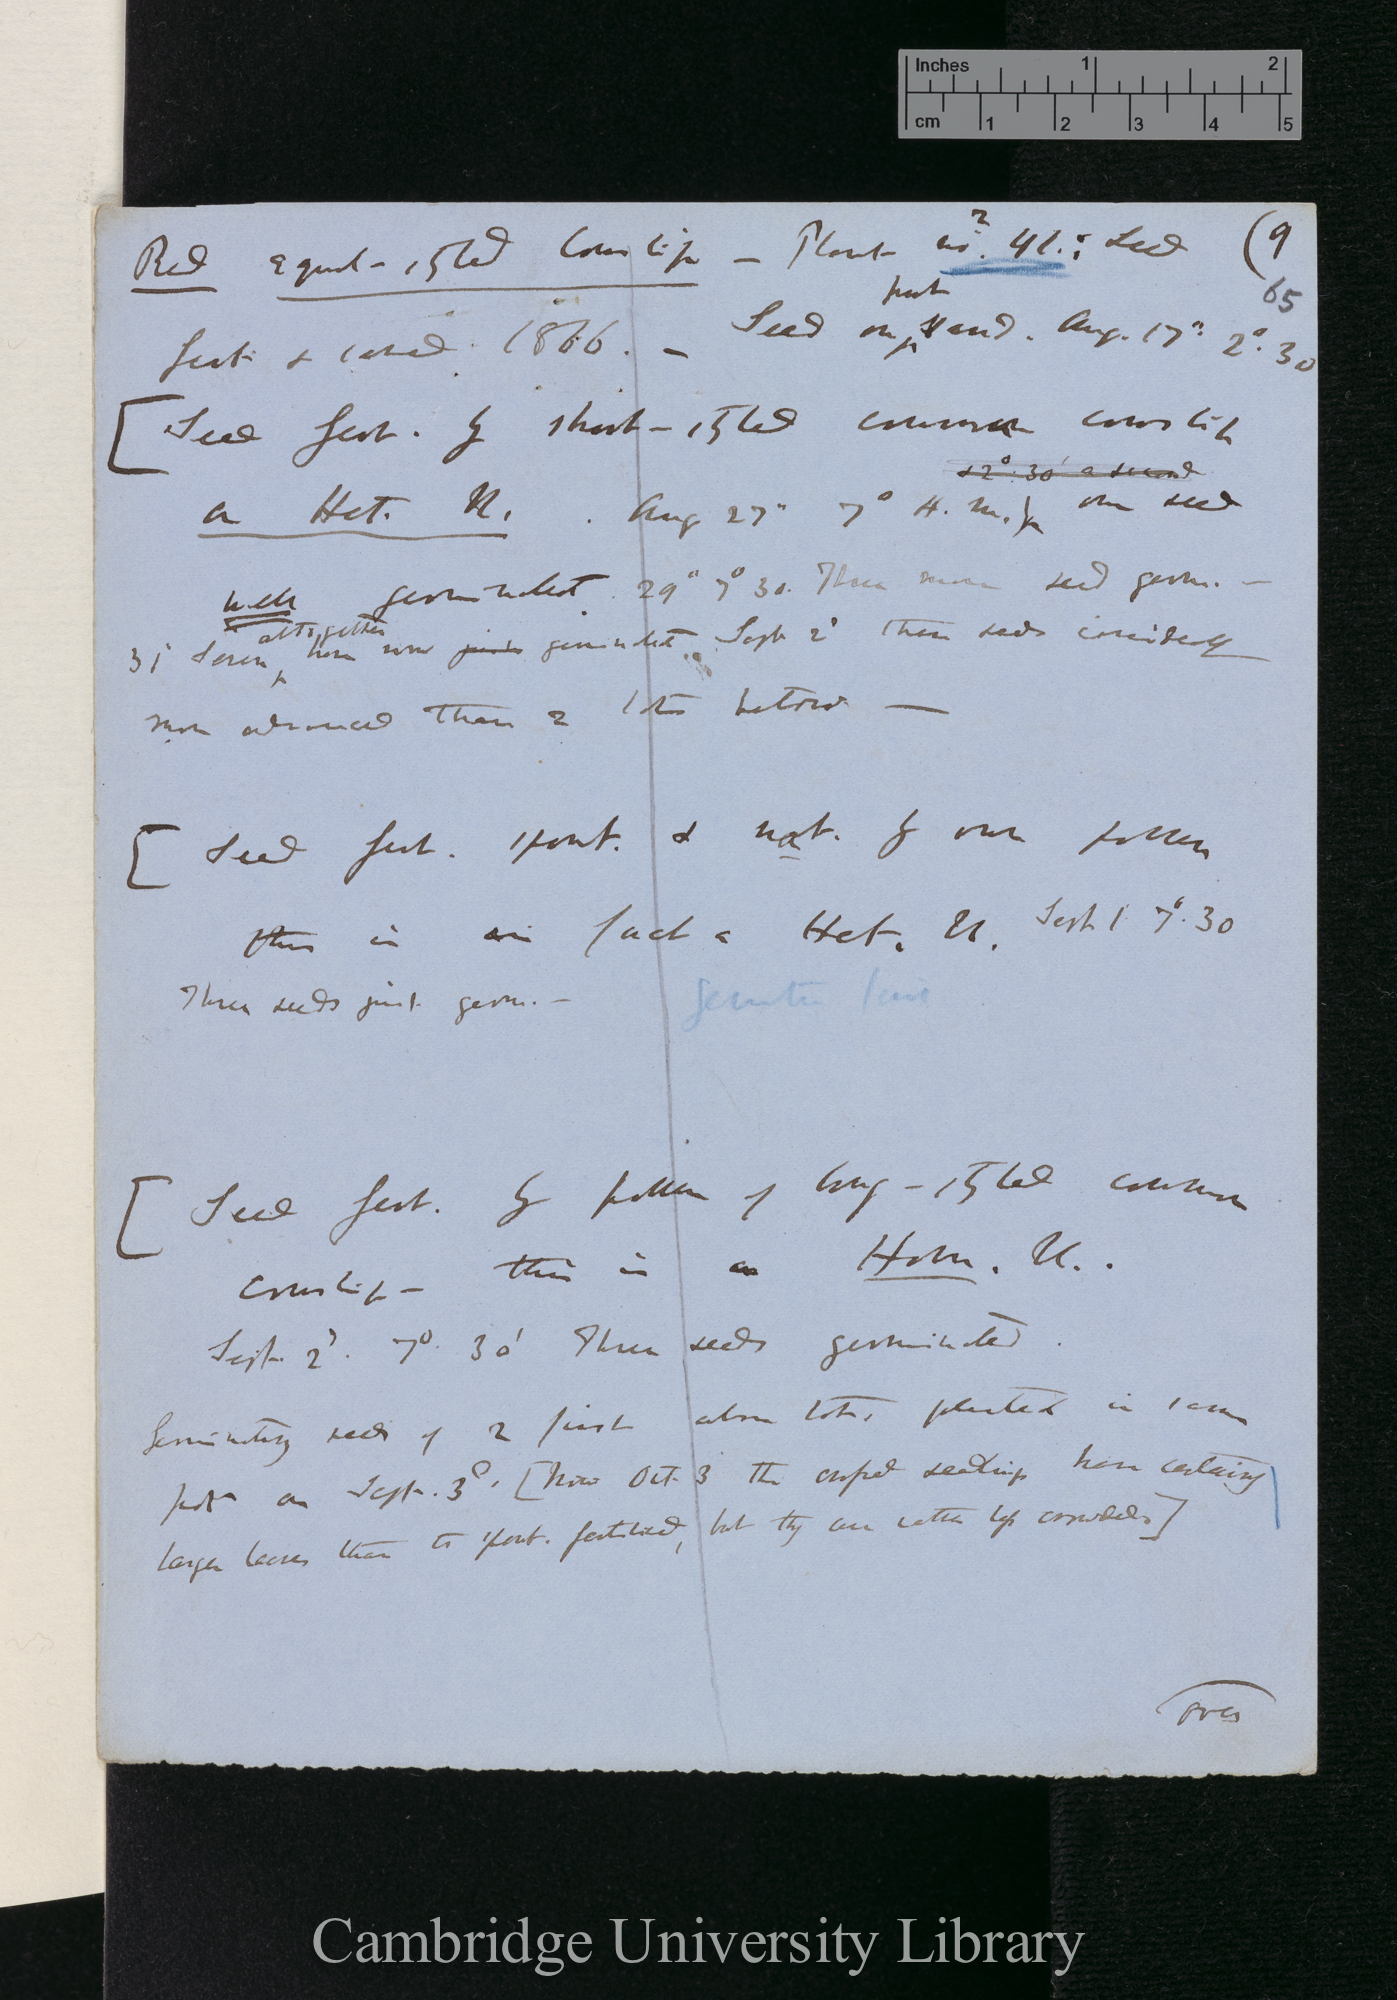 Inches 1 2
cm 1 2 3 4 5
Red equal-styled Cowslip — Plant no. 41.: Seed (9
65
fert. & saved. 1866. — Seed put on sand. Aug. 17th 2°. 30
[Seed fert. by short-styled common cowslip
& 2°. 30' a second
a Het. U. Aug 27th 7° A.M. one seed
well germinated. 29th 7° 30. Three more seed germ. —
31st Seven altogether have now germinated. Sept 2d these seeds considerably
more advanced than 2 lots below —
[Seed fert. spont. & nat. by own pollen
this is in fact a Het. U. Sept 1 7°. 30
Three seeds just germ. —
[Seed fert. by pollen of long-styled common
cowslip — this is a Hom. U..
Sept. 2d. 7°. 30' Three seeds germinated.
Germinating seeds of 2 first above lots, planted in same
pot on Sept. 3d. [Now Oct. 3 the crossed seedlings have certainly
larger leaves than the spont. fertilised, but they are rather less crowded]
over
Cambridge University Library